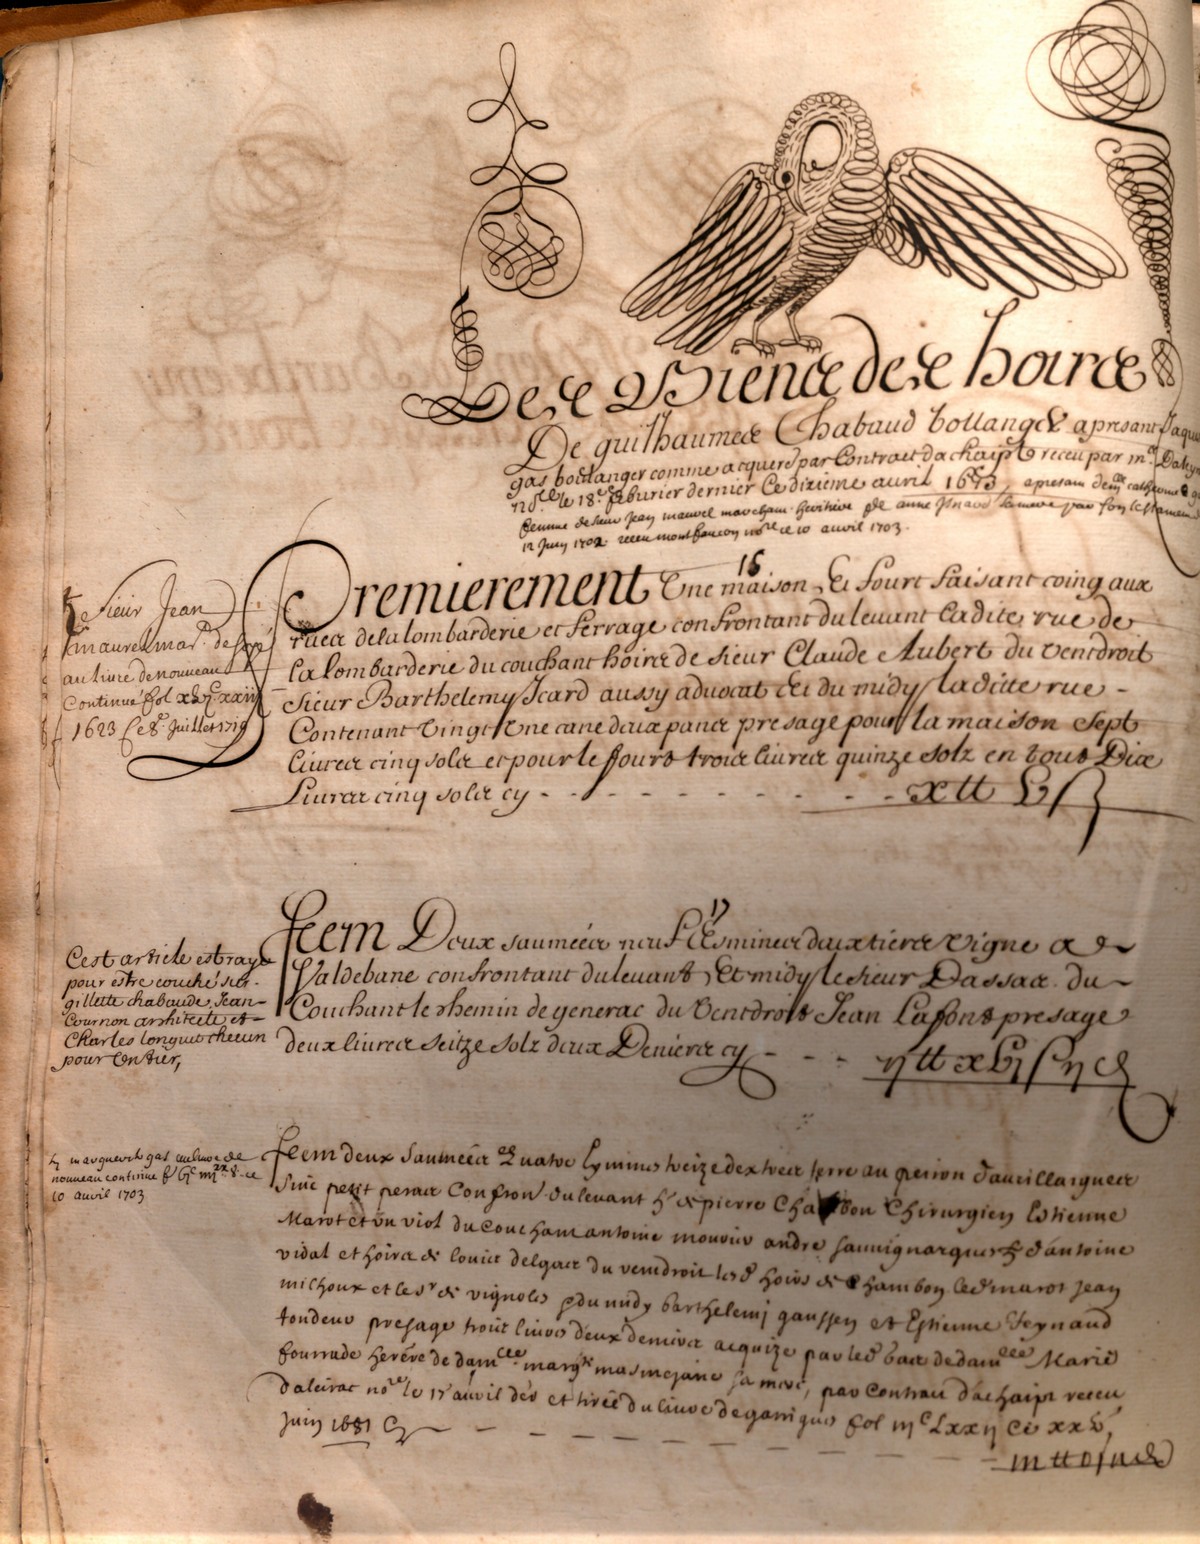 Les Biens des hoirs
De guilhaumes Chabaud bollanger apresant Jaques
gas boulanger comme acquere par Contract dachaipt receu par mr.
nore le 18e febvrier dernier Ce dixieme avril 1673, apresam
femme de sieur Jean maurel marchant heritiere de anne Isnard sa mere par son testament
12 Juin 1702 receu montfaucon nore ce 10 avril 1703.
Sieur Jean
maurel mard.
au livre de nouveau
Continué fol
1623 Ce 8e Juillet
16
Premierement Une maison Et fourt faisant coing aux
rues de la lombarderie et ferrage confrontant du levant Ladite rue de
La lombarderie du couchant hoirs de sieur Claude Aubert du Ventdroit
sieur Barthelemy Icard aussy advocat Et du midy laditte rue -
Contenant Vingt Une cane deux pancs presage pour la maison Sept
livres cinq sols et pour le fourt trois livres quinze solz en tout Dix
Livres cinq sols cy - - - - - - - x tt V s
Cest article est rayé
pour estre couché sur
gillette chabaude, Jean
Cournon architecte et
Charles longuet checun
pour Entier,
17
Item Deux saumées neuf Esmines deux tiers vigne a
Valdebane confrontant du levant Et midy le sieur Dassas du
Couchant le chemin de generac du Ventdroit Jean Lafont presage
deux livres seitze solz deux Deniers cy - - - ij tt xvi s ij d
marguerite gas au livre de
nouveau continue fo
10 avril 1703
Item deux saumées quatre Eymines treize dextres terre au perion daureillargues
sive petit peras Confron. du levant hs de pierre Chambon Chirurgien Estienne
Marot et un viol du Couchant antoine mouvier andre sauvignargues hs d'antoine
vidal et hoirs de louis delgas du vendroit lesd hoirs de Chambon led marot Jean
michoux et le sr de vignoles du midy barthelemi gaussen et Estienne Teynaud
tondeur presage trois livres deux deniers acquize par led gas de damlle Marie
fourrade here de damlle margte masmejane sa mere, par Contrau d'achaipt receu
dalcirac nore le 17 avril der et tirée du livre de garrigues fol iiic Lxxij Ce xxv
Juin 1681 Cy - - - - - - iij tt 0 s ij d